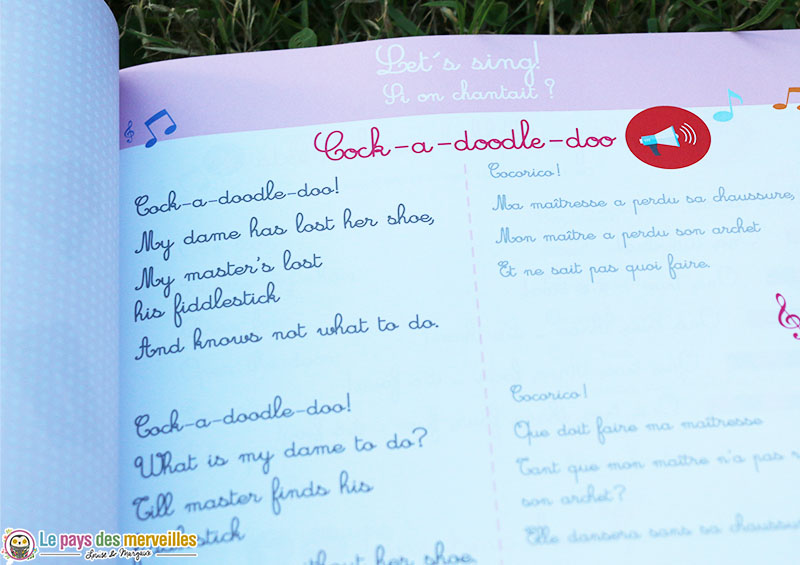 Let's sing!
Si on chantait ?
Cock-a-doodle-doo
Cock-a-doodle-doo!
My dame has lost her shoe,
My master's lost
his fiddlestick
And knows not what to do.
Cock-a-doodle-doo!
What is my dame to do?
Till master finds his
her shoe.
Cocorico!
Ma maîtresse a perdu sa chaussure,
Mon maître a perdu son archet
Et ne sait pas quoi faire.
Cocorico!
Que doit faire ma maîtresse
Tant que mon maître n'a pas
son archet?
Elle dansera sans sa
Le pays des merveilles
Louise & Margaux